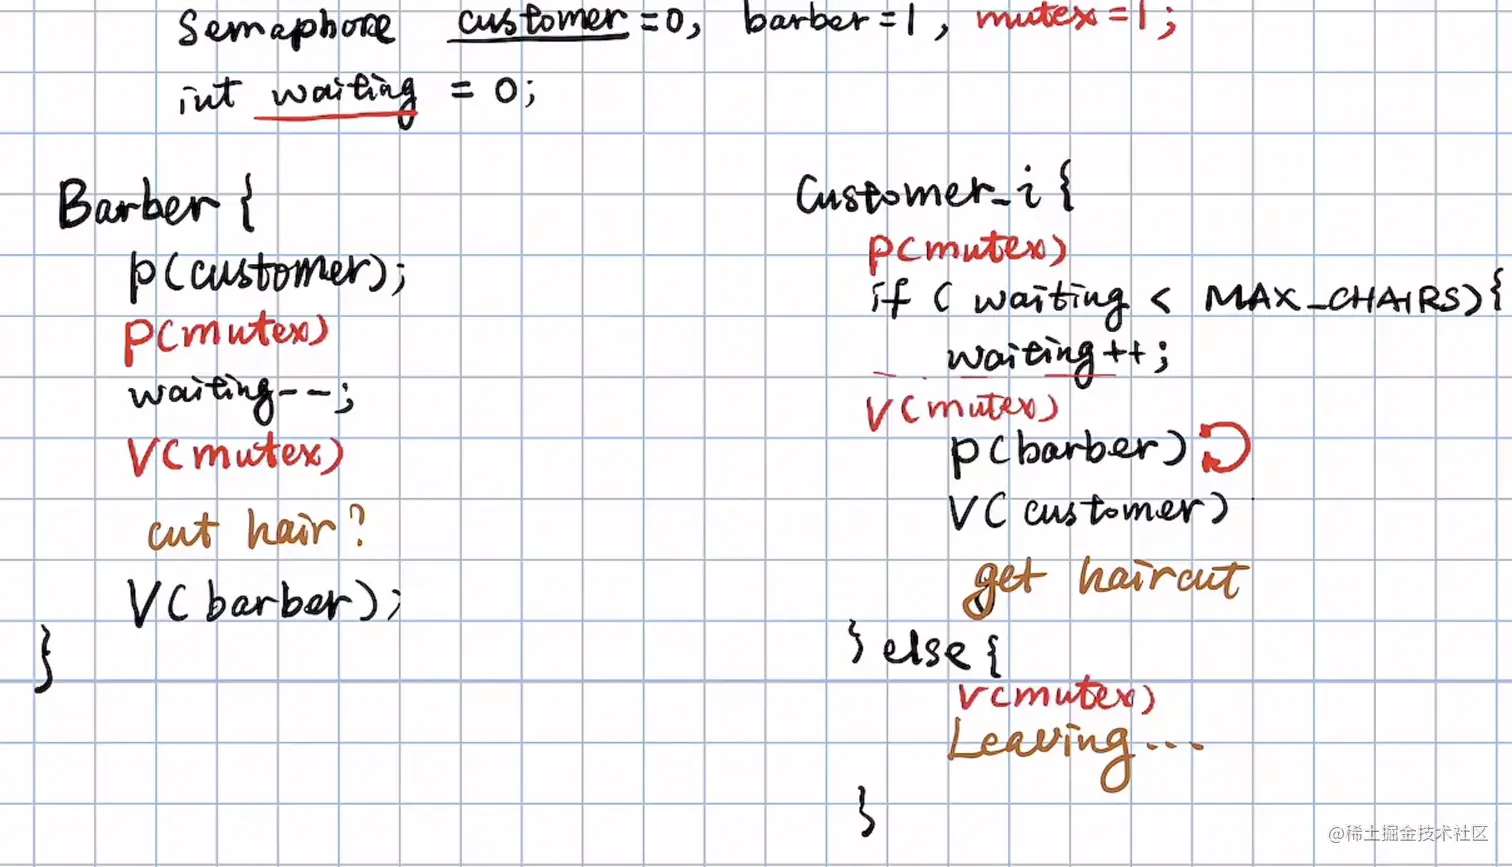 Semaphore customer = 0, barber = 1, mutex = 1;
int waiting = 0;
Barber {
p(customer);
p(mutex)
waiting--;
V(mutex)
cut hair?
V(barber);
}
Customer_i {
p(mutex)
if ( waiting < MAX_CHAIRS) {
waiting++;
V(mutex)
p(barber)
V(customer)
get haircut
} else {
V(mutex)
Leaving...
}
@稀土掘金技术社区